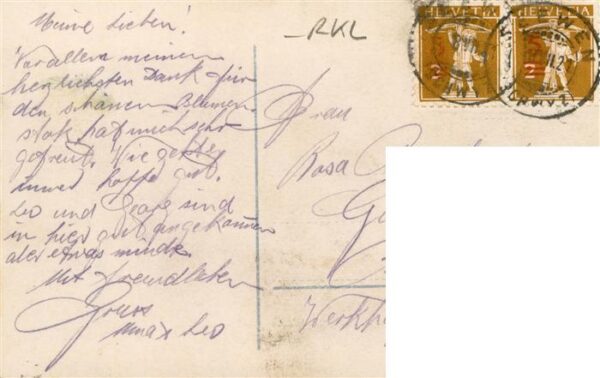 Meine Lieben!
Vor allem meinen
herzlichsten Dank für
den schönen Blumen-
stok hat mich sehr
gefreut. Wie geht's
immer hoffe gut.
Leo und sind
in hier gut angekommen
aber etwas müde
Mit freundlichen
Gruss
Leo
RKL
HELVETIA HELVETIA
2 2
Frau
Rosa
Werkh